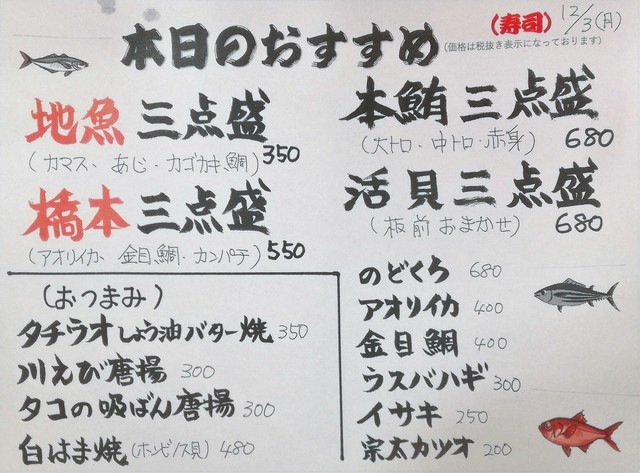 本日のおすすめ
(寿司)
12/3(月)
(価格は税抜き表示になっております)
地魚 三点盛 350
(カマス、あじ・カゴカキ鯛)
橋本 三点盛 550
(アオリイカ、金目鯛・カンパチ)
本鮪 三点盛 680
(大トロ・中トロ・赤身)
活貝 三点盛 680
(板前おまかせ)
(おつまみ)
タチウオしょう油バター焼 350
川えび唐揚 300
タコの吸ばん唐揚 300
白はま焼(ホンビノス貝) 480
のどくろ 680
アオリイカ 400
金目鯛 400
ウスバハギ 300
イサキ 250
宗太カツオ 200